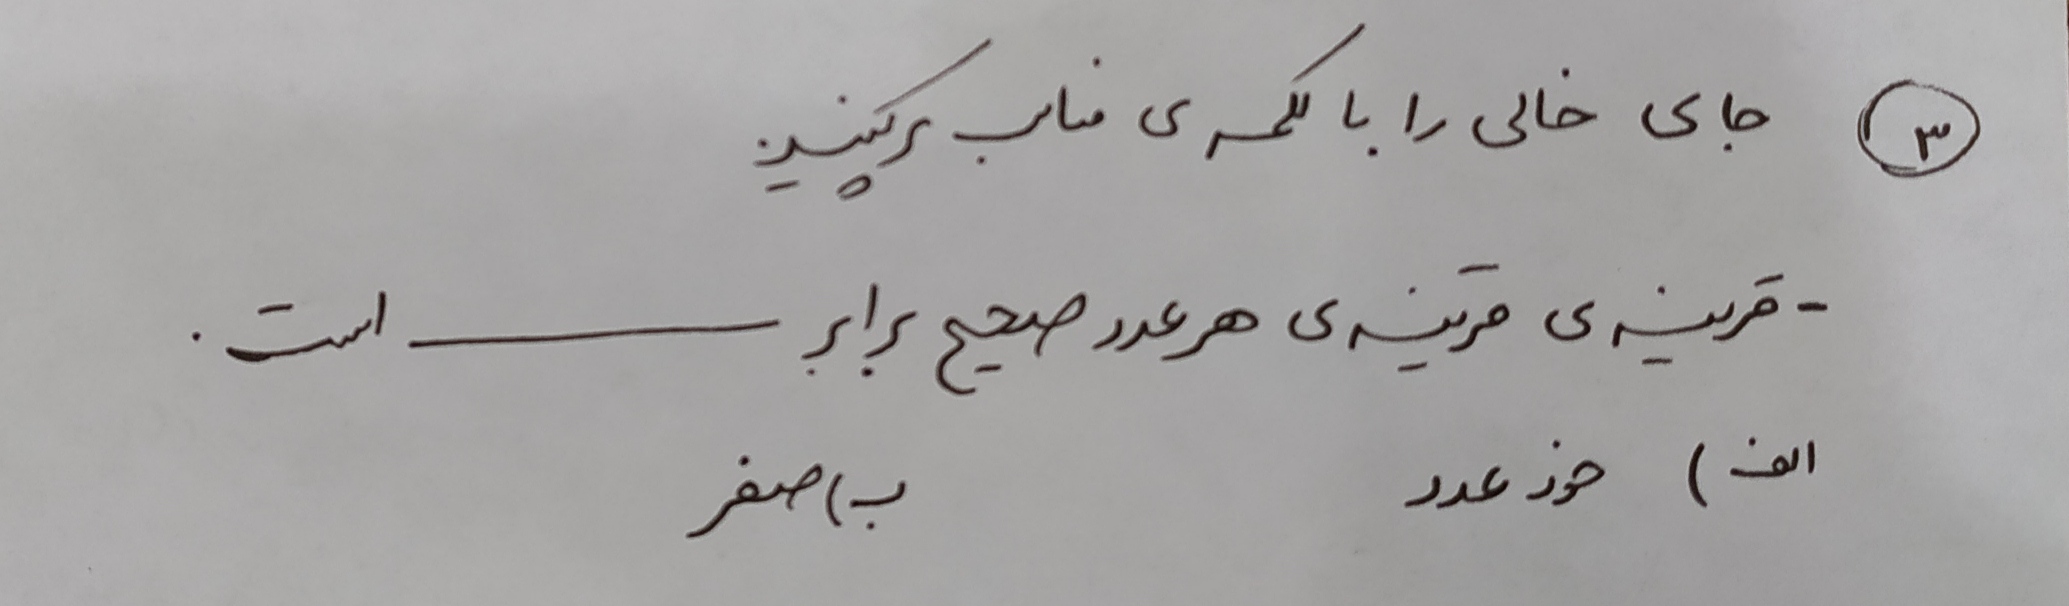 ۳ جای خالی را با کلمه ی مناسب پر کنید.
- قرینه ی قرینه ی هر عدد صحیح برابر ______ است.
الف) خود عدد ب) صفر